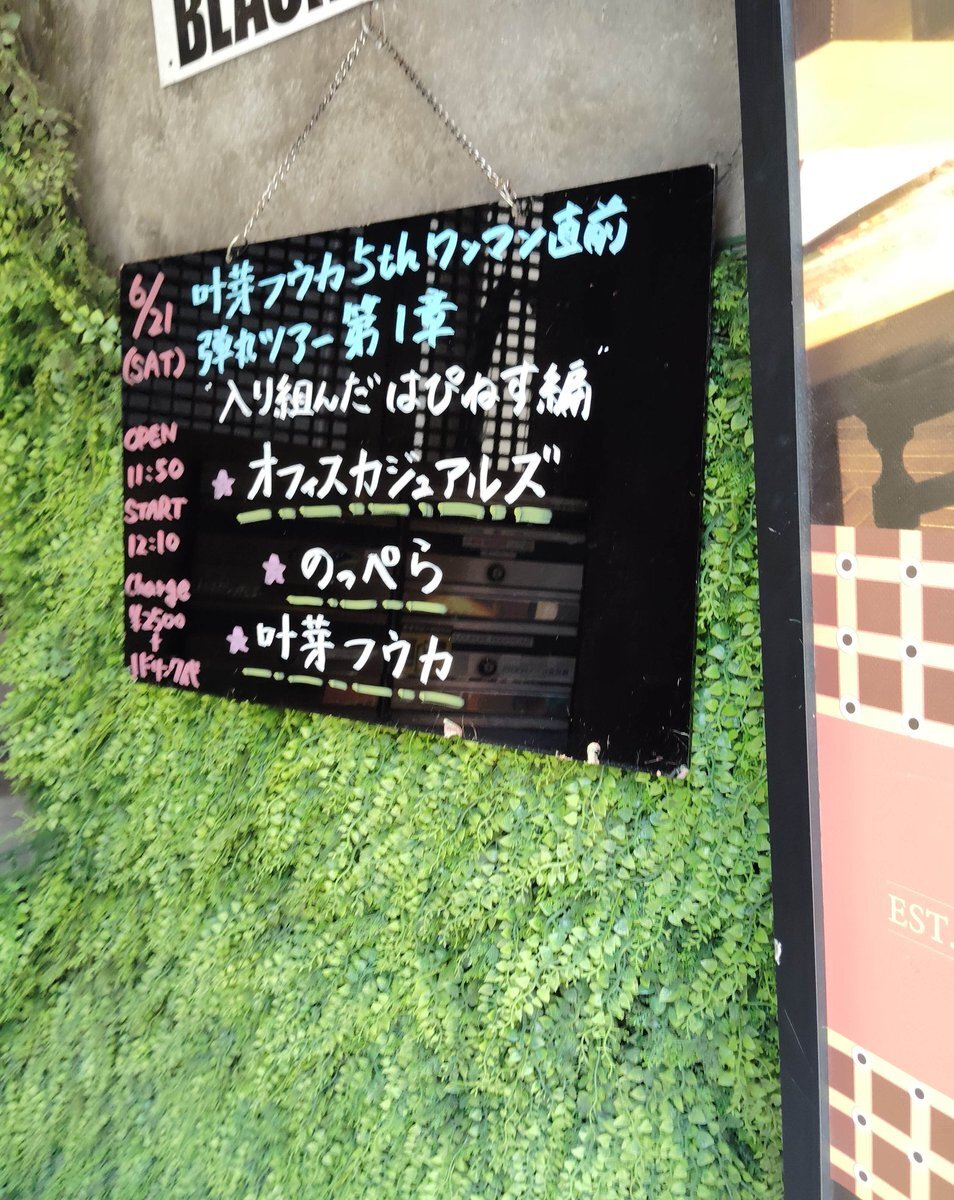 BLACK
6/21
(SAT)
OPEN
11:50
START
12:10
Charge
¥2500
+
1ドリンク代
叶芽フウカ 5th ワンマン直前
弾丸ツアー 第1章
"入り組んだはぴねす編"
オフィスカジュアルズ
のっぺら
叶芽フウカ
EST.